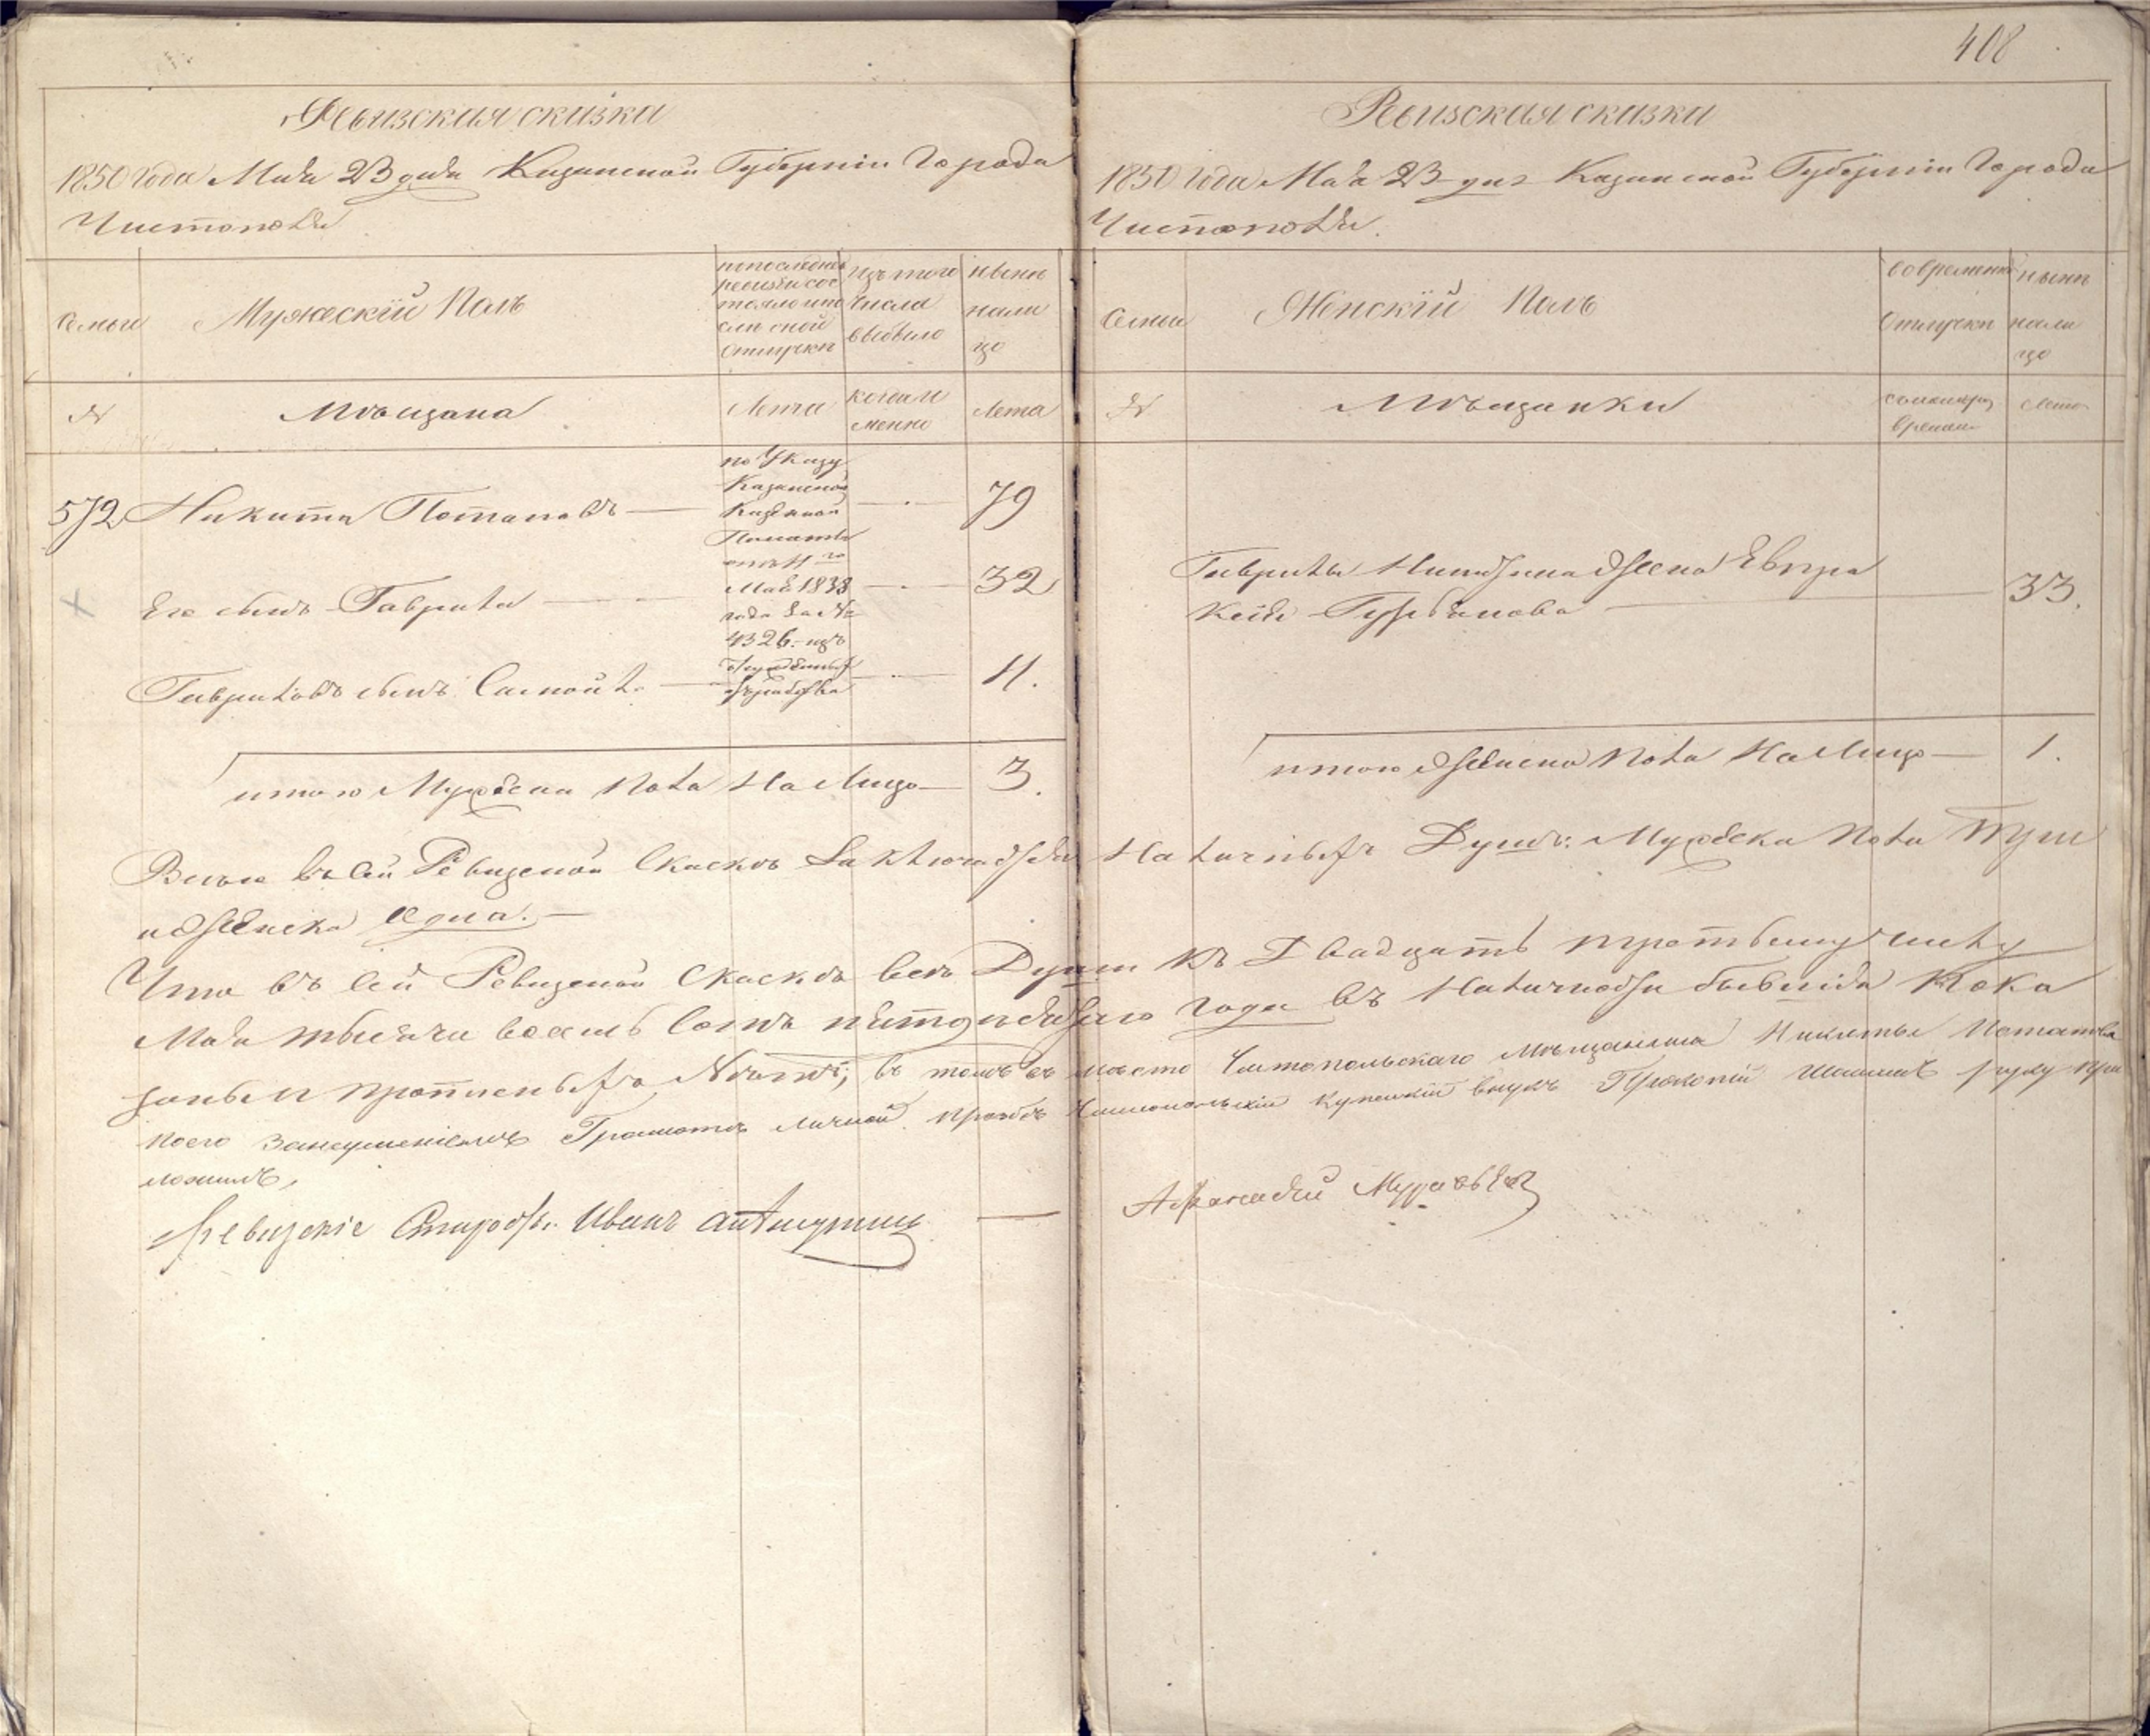 408
Ревизская сказка
1850 года Мая 23 дня Казанской Губернии Города
Чистополя
Семьи
Мужеский Полъ
по последней
ревизии сос
тояло и по
сле оной
отлучки
изъ того
числа
выбыло
ныне
нали
цо
№
Мѣщана
Лета
когда и
менно
Лета
572 Никита Потаповъ — 79
по Указу
Казанской
Казенной
Палаты
отъ 11го
Мая 1838
года за №
4326 изъ
Его сынъ Гаврила — 32
Гавриловъ сынъ Самойла — 11.
итого Мужеска пола на лицо — 3.
Ревизская сказка
1850 года Мая 23 дня Казанской Губернии Города
Чистополя.
Семьи
Женскій Полъ
во временной
отлучки
ныне
нали
цо
№
Мѣщанки
съ которого
времени
лета
Гаврилы Никитина жена Евпра
кеія Гурьянова — 33.
итого женска пола на лицо — 1.
Всего въ сей Ревизской Скаске заключается наличныхъ Душъ: Мужеска пола Три
и женска одна. —
Что въ сей Ревизской Скаске все Души къ Двадцать третьему числу
Мая тысяча восемь сотъ пятдесятаго года въ наличности бывшія пока
заны и прописныхъ нѣтъ; въ томъ въ место Чистопольскаго мѣщанина Никиты Потапова
по его за неумениемъ Грамоте личной прозбе Чистопольскій купецкій внукъ Прокопій руку при
ложилъ,
Иванъ
Афанасий Муравьев